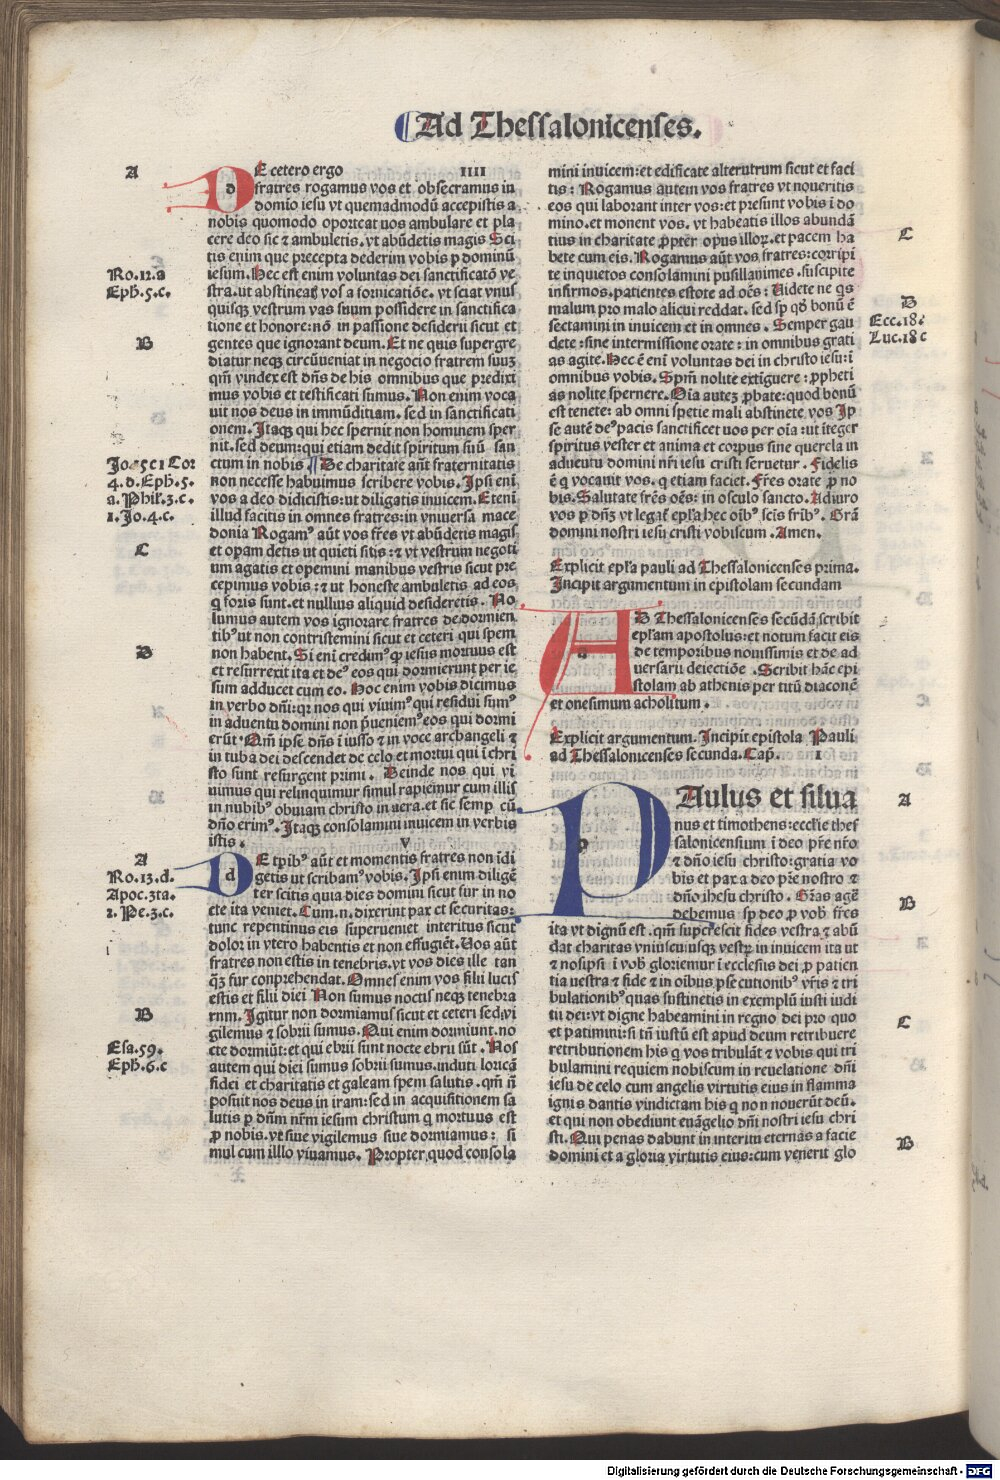 Ad Thessalonicenses.
A
DE cetero ergo IIII
fratres rogamus vos et obsecramus in
domio iesu vt quemadmodū accepistis a
nobis quomodo oporteat vos ambulare et pla
cere deo sic ⁊ ambuletis. vt abūdetis magis Sci
tis enim que precepta dederim vobis p dominū
iesum. Hec est enim voluntas dei sanctificatō ve
stra. ut abstineatꝭ vos a fornicatiōe. vt sciat vnus
quisqꝫ vestrum vas suum possidere in sanctifica
tione et honore: nō in passione desiderii sicut et
gentes que ignorant deum. Et ne quis supergre
diatur neqꝫ circūueniat in negocio fratrem suuꝫ
qm̄ vindex est dn̄s de his omnibus que predixi
mus vobis et testificati sumus. Non enim voca
uit nos deus in immūditiam. sed in sanctificati
onem. Itaqꝫ qui hec spernit non hominem sper
nit. sed deum: qui etiam dedit spiritum suū san
ctum in nobis De charitate aūt fraternitatis
non necesse habuimus scribere vobis. Ipsi eni
vos a deo didicistis: ut diligatis inuicem. Eteni
illud facitis in omnes fratres: in vniuersa mace
donia Rogamꝰ aūt vos fr̄es vt abūdetis magis
et opam detis ut quieti sitis: ⁊ vt vestrum negoti
um agatis et opemini manibus vestris sicut pre
cepimus vobis: ⁊ ut honeste ambuletis ad eos
q̄ foris sunt. et nullius aliquid desideretis. No
lumus autem vos ignorare fratres de dormien
tibꝰ ut non contristemini sicut et ceteri qui spem
non habent. Si eni credimꝰ ꝙ iesus mortuus est
et resurrexit ita et deꝰ eos qui dormierunt per ie
sum adducet cum eo. Hoc enim vobis dicimus
in verbo dn̄i: qꝛ nos qui viuimꝰ qui residui sumꝰ
in aduentu domini non p̄ueniemꝰ eos qui dormi
erūt. Qm̄ ipse dn̄s ī iusso ⁊ in voce archangeli ⁊
in tuba dei descendet de celo et mortui qui ī chri
sto sunt resurgent primi. Deinde nos qui vi
uimus qui relinquimur simul rapiemur cum illis
in nubibꝰ obuiam christo in aera. et sic semp cū
dn̄o erimꝰ. Itaqꝫ consolamini inuicem in verbis
istis. V
DE tpibꝰ aūt et momentis fratres non īdi
getis ut scribamꝰ vobis. Ipsi enim diligē
ter scitis quia dies domini sicut fur in no
cte ita veniet. Cum .n. dixerint pax et securitas:
tunc repentinus eis superueniet interitus sicut
dolor in vtero habentis et non effugiēt. Vos aūt
fratres non estis in tenebris. vt vos dies ille tan
qꝫ fur conprehendat. Omnes enim vos filii lucis
estis et filii diei Non sumus noctis neqꝫ tenebra
rum. Igitur non dormiamus sicut et ceteri sed vi
gilemus ⁊ sobrii sumus. Qui enim dormiunt. no
cte dormiūt: et qui ebrii sunt nocte ebrii sūt. Nos
autem qui diei sumus sobrii sumus. induti loricā
fidei et charitatis et galeam spem salutis. qm̄ n̄
posuit nos deus in iram: sed in acquisitionem sa
lutis p dn̄m nr̄m iesum christum q mortuus est
ꝓ nobis. vt siue vigilemus siue dormiamus: si
mul cum illlo viuamus. Propter quod consola
Ro.12.a
Eph.5.c.
B
Jo.5c1Cor
4.d.Eph.5.
a.Phil.3.c.
1.Jo.4.c.
C
D
A
Ro.13.d.
Apoc.3ta.
2.Pe.3.c.
B
Esa.59.
Eph.6.c
mini inuicem: et edificate alterutrum sicut et faci
tis: Rogamus autem vos fratres vt noueritis
eos qui laborant inter vos: et presunt vobis ī do
mino. et monent vos. vt habeatis illos abundā
tius in charitate ꝓpter opus illoꝝ. et pacem ha
bete cum eis. Rogamus aūt vos fratres: corripi
te inquietos consolamini pusillanimes. suscipite
infirmos. patientes estote ad oēs: Uidete ne qs
malum pro malo alicui reddat. sed sp qd̄ bonū ē
sectamini in inuicem et in omnes. Semper gau
dete: sine intermissione orate: in omnibus grati
as agite. Hec ē eni voluntas dei in christo iesu: ī
omnibus vobis. Spm̄ nolite extiguere: ꝓpheti
as nolite spernere. Oia auteꝫ ꝓbate: quod bonū
est tenete: ab omni spetie mali abstinete vos Ip
se autē deꝰ pacis sanctificet vos per oia: ut iteger
spiritus vester et anima et corpus sine querela in
aduentu domini nr̄i iesu cristi seruetur. Fidelis
ē q̄ vocauit vos. q etiam faciet. Fr̄es orate ꝓ no
bis. Salutate fr̄es oēs: in osculo sancto. Adiuro
vos p dn̄ꝫ vt legat̄ ep̄la hec oibꝰ scīs frībꝰ. Grā
domini nostri iesu cristi vobiscum. Amen.
Explicit ep̄la pauli ad Thessalonicenses prima.
Incipit argumentum in epistolam secundam
AD Thessalonicenses secūdā scribit
ep̄lam apostolus: et notum facit eis
de temporibus nouissimis et de ad
uersarii deiectiōe. Scribit hāc epi
stolam ab athenis per titū diaconē
et onesimum acholitum.
Explicit argumentum. Incipit epistola Pauli
ad Thessalonicenses secunda. Cap. I
PAulus et silua
nus et timotheus: ecclie thes
salonicensium ī deo pr̄e nr̄o
⁊ dn̄o iesu christo: gratia vo
bis et pax a deo pr̄e nostro ⁊
dn̄o ihesu christo. Grās agē
debemus sp deo ꝓ vob̄ fr̄es
ita vt dignū est. qm̄ supcrescit fides vestra. ⁊ abū
dat charitas vniuscuiusqꝫ vestꝝ in inuicem ita ut
⁊ nosipsi ī vob̄ gloriemur ī ecclesiis dei ꝓ patien
tia vestra ⁊ fide ⁊ in oibus ꝑsecutionibꝰ vr̄is ⁊ tri
bulationibꝰ quas sustinetis in exemplū iusti iudi
tii dei: vt digne habeamini in regno dei pro quo
et patimini: si tn̄ iustū est apud deum retribuere
retributionem his q vos tribulāt ⁊ vobis qui tri
bulamini requiem nobiscum in reuelatione dn̄i
iesu de celo cum angelis virtutis eius in flamma
ignis dantis vindictam his q non nouerūt deū.
et qui non obediunt euāgelio dn̄i nostri iesu chri
sti. Qui penas dabunt in interitu eternas a facie
domini et a gloria virtutis eius: cum venerit glo
C
D
Ecc.18.
Luc.18c
A
B
C
D
Digitalisierung gefördert durch die Deutsche Forschungsgemeinschaft - DFG